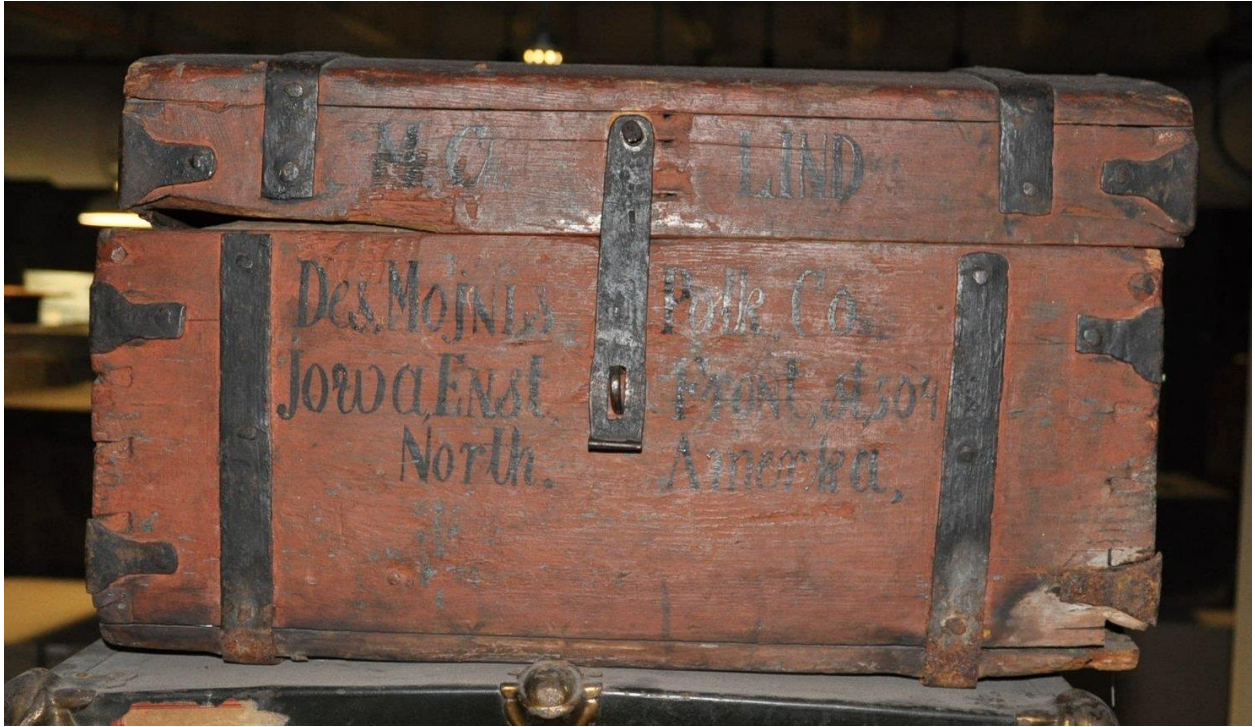 N. O. LIND
Des, Mojnes, Polk, Co,
Jowa, Enst, Front, st, 504
North. Amerika,